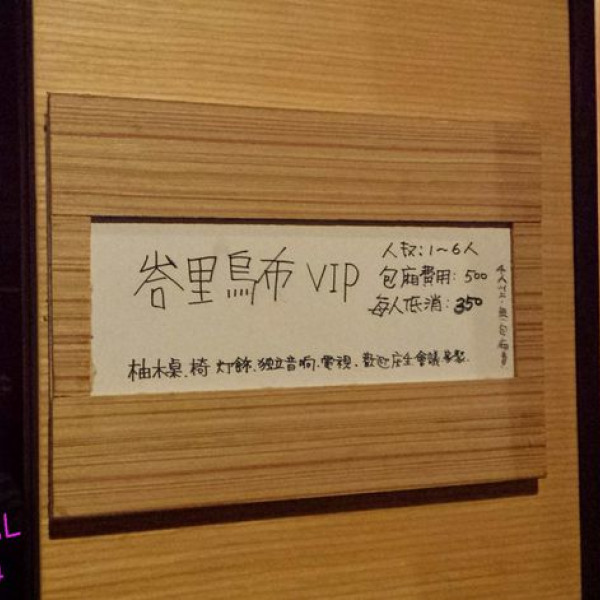 峇里烏布 VIP
人数:1~6人
包廂費用:500
每人低消:350
柚木桌.椅 灯飾.獨立音响.電視.歡迎 會議